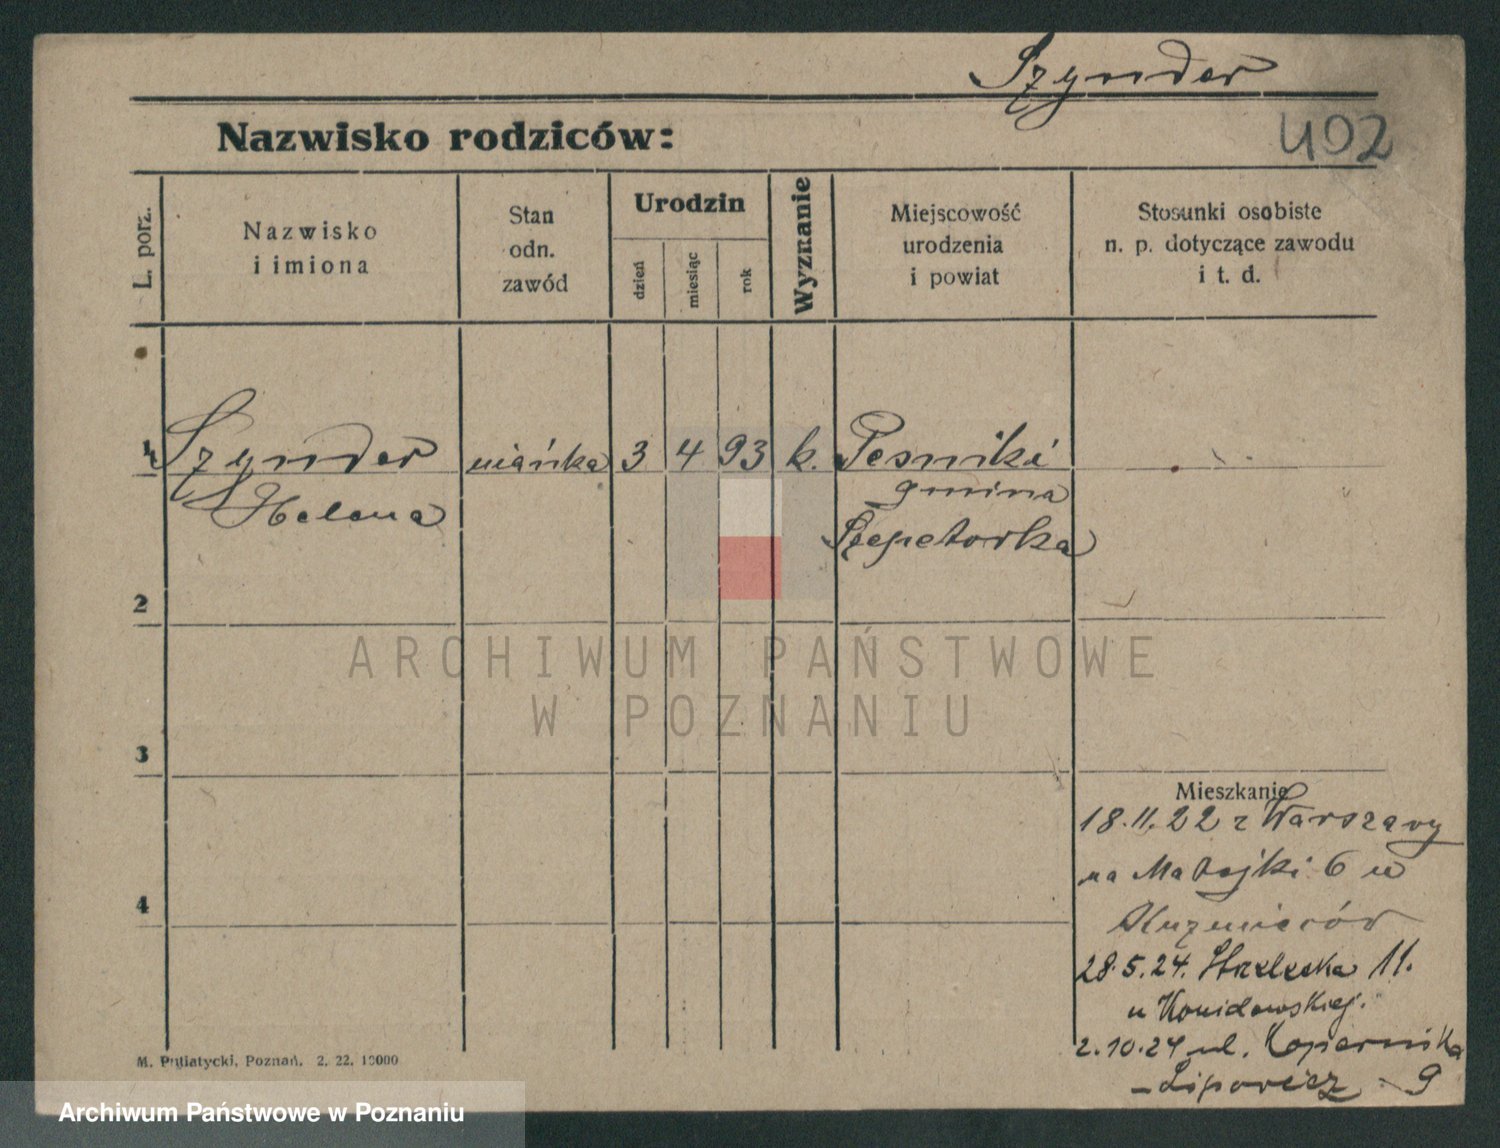 Szynder
Nazwisko rodziców:
402
L. porz.
Nazwisko
i imiona
Stan
odn.
zawód
Urodzin
dzień
miesiąc
rok
Wyznanie
Miejscowość
urodzenia
i powiat
Stosunki osobiste
n. p. dotyczące zawodu
i t. d.
1 Szynder niańka 3 4 93 k. Pesniki
Helena gmina
Szepetorka
2
ARCHIWUM PAŃSTWOWE
W POZNANIU
3
Mieszkanie
18.11.22 z Warszawy
na Matejki 6 u
4
28.5.24. Strzelecka 11.
u
2.10.24 ul. Kopernika
Lipowicz 9
M. Putiatycki, Poznań. 2. 22. 10000
Archiwum Państwowe w Poznaniu